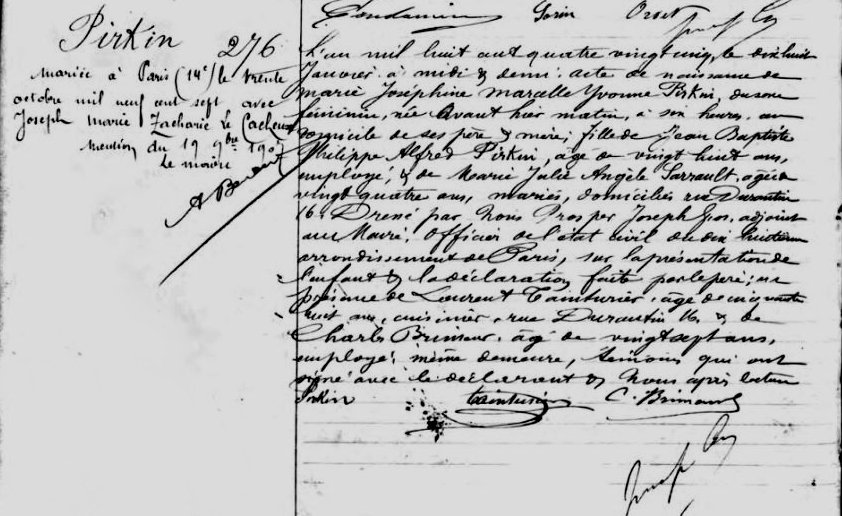 Pirkin
276
Mariée à Paris (14e) le trente
octobre mil neuf cent sept avec
Joseph Marie Zacharie Le Cacheux
Mention du 19 9bre 1907
Le maire
Gorin Orset
L'an mil huit cent quatre vingt cinq, le dix huit
Janvier à midi & demi: acte de naissance de
Marie Joséphine Marcelle Yvonne Pirkin, du sexe
féminin, née avant hier matin, à six heures, au
domicile de ses père & mère; fille de Jean Baptiste
Philippe Alfred Pirkin, âgé de vingt huit ans,
employé, & de Marie Julie Angèle Sarrault, âgée de
vingt quatre ans, mariés, domiciliés rue Durantin
16. Dressé par Nous Prosper Joseph adjoint
au Maire, Officier de l'état civil du dix huitième
arrondissement de Paris, sur la présentation de
l'enfant & la déclaration faite par le père; en
présence de Laurent Tainturier, âgé de cinquante
huit ans, cuisinier, rue Durantin 16, & de
Charles âgé de vingt sept ans,
employé, même demeure, témoins qui ont
signé avec le déclarant & Nous après lecture
Pirkin Tainturier C.